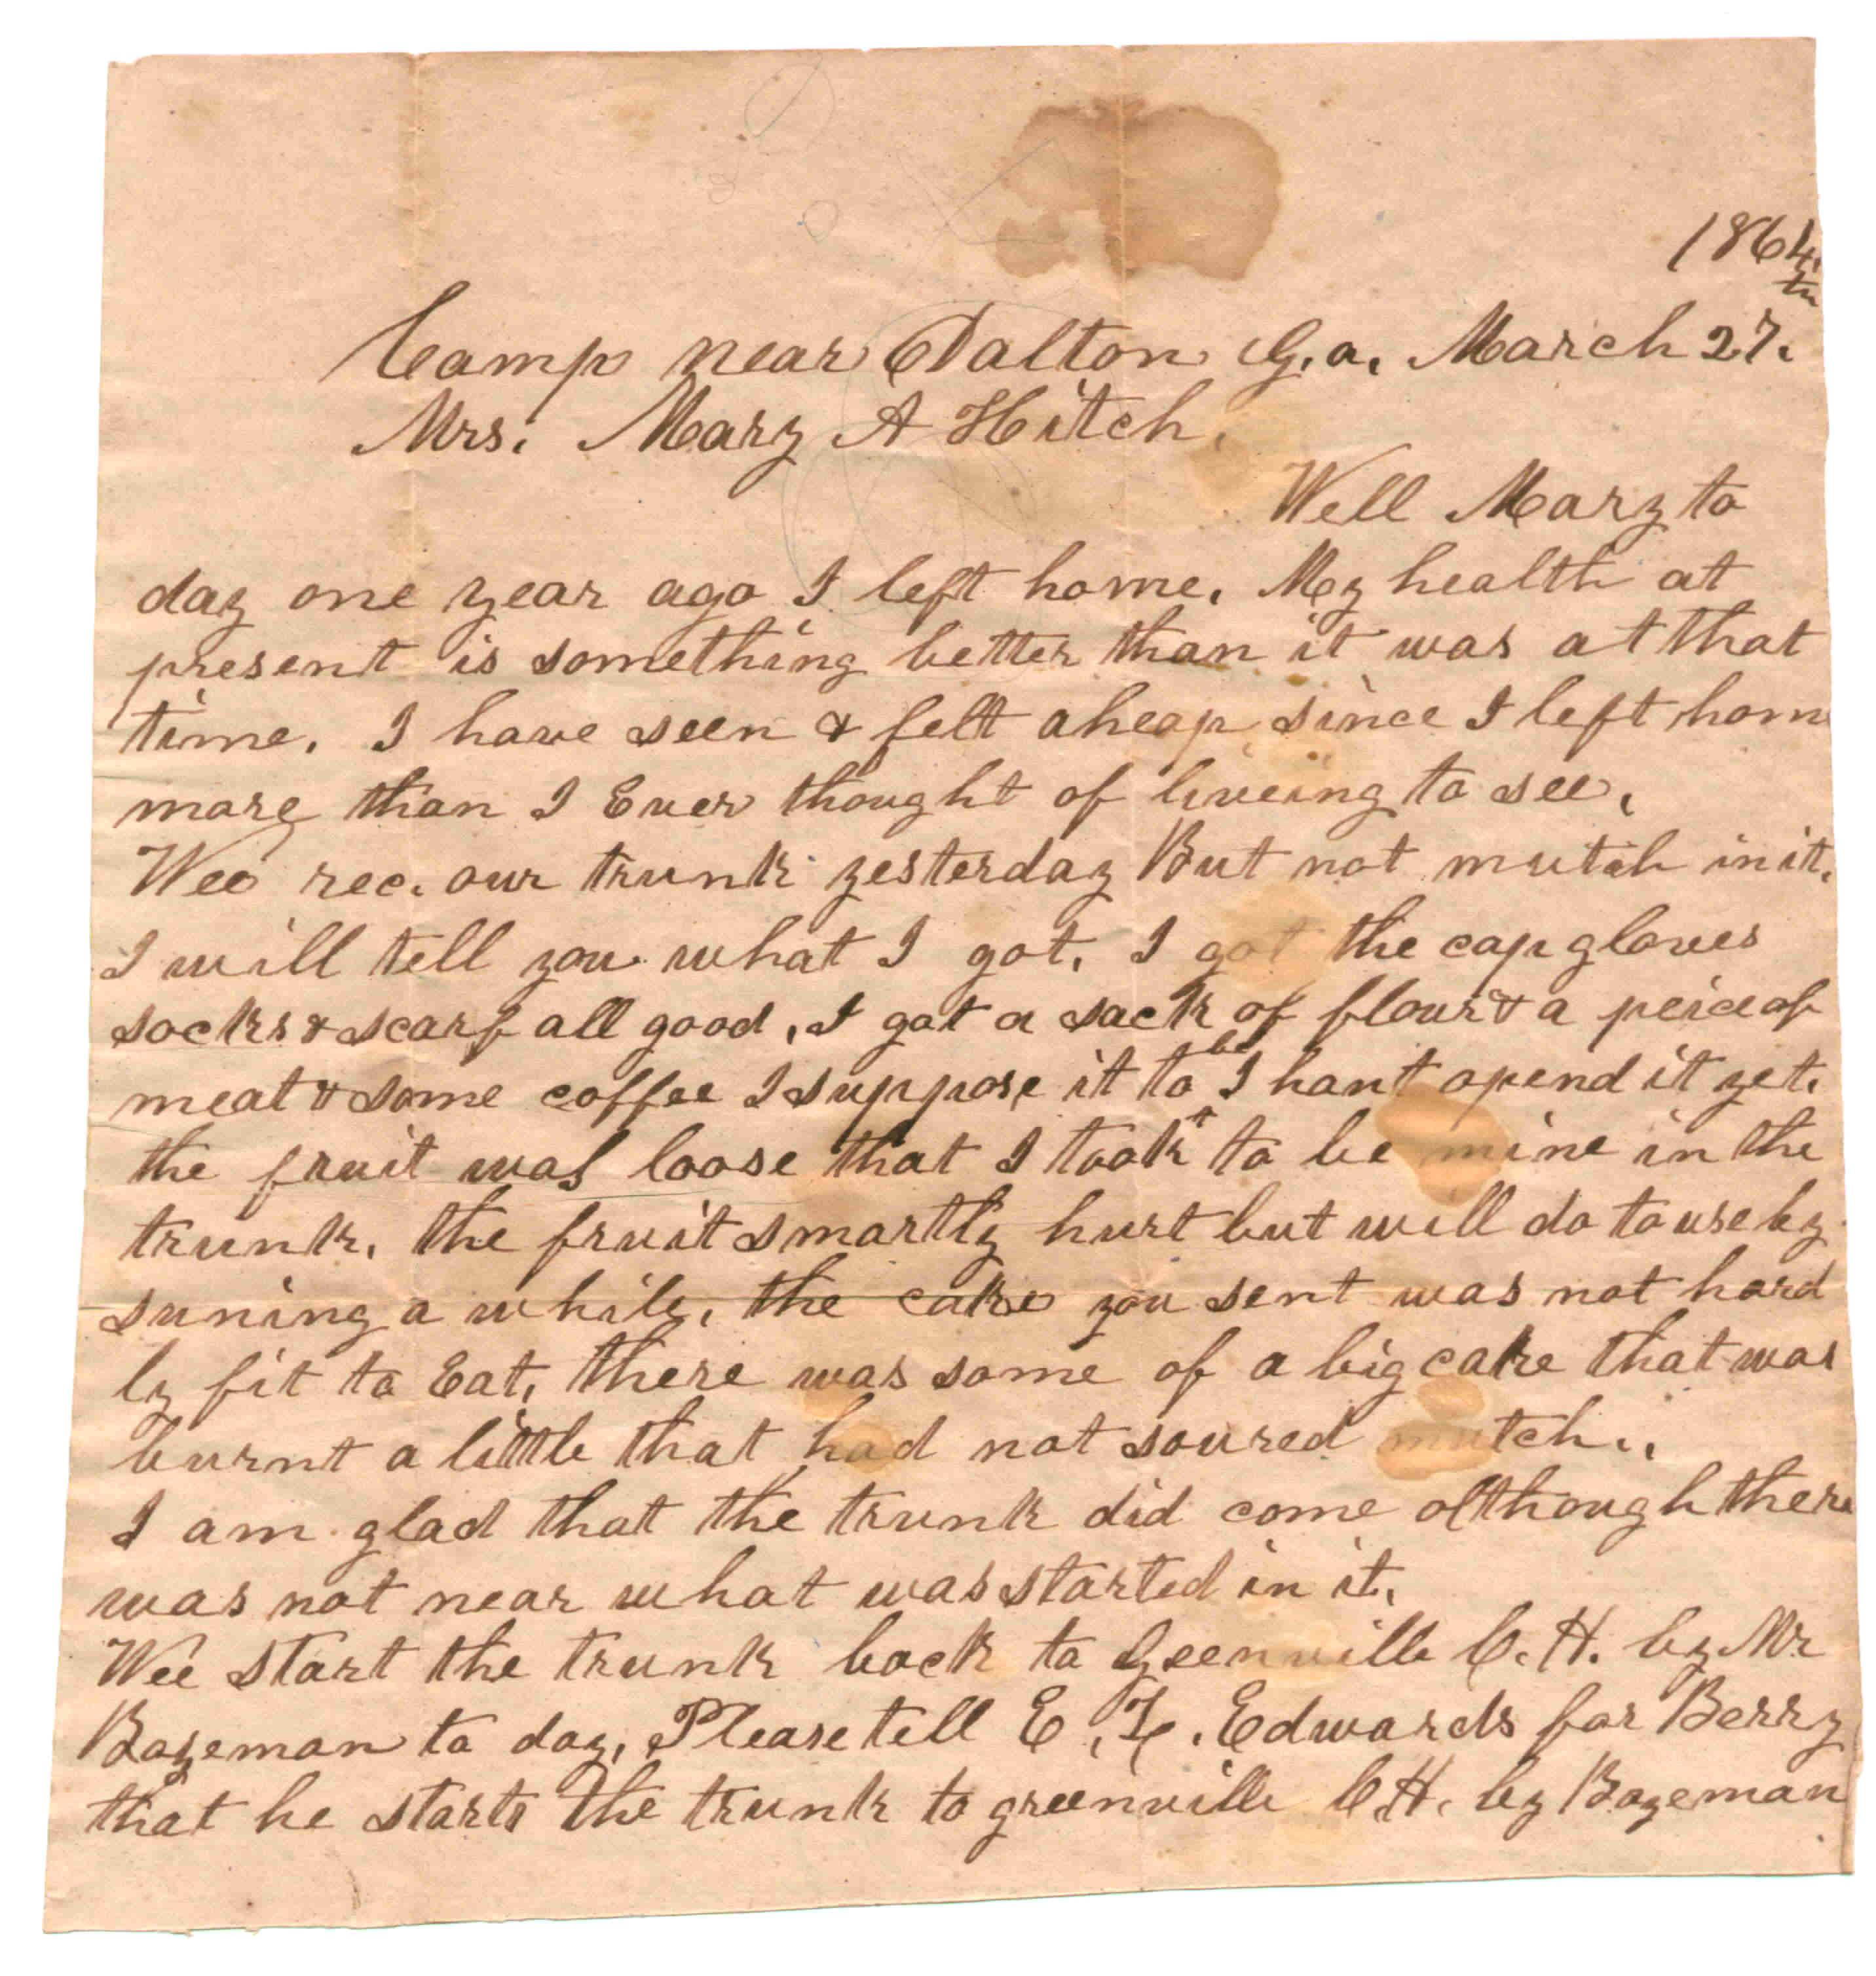 1864.
th
Camp near Dalton G.a. March 27.
Mrs. Mary A Hitch.
Well Mary to
day one year ago I left home. My health at
present is something better than it was at that
time. I have seen & felt aheap since I left hom
more than I Ever thought of liveing to see.
Wee rec. our trunk yesterday But not mutch in it.
I will tell you what I got. I got the cap gloves
socks & scarf all good. I got a sack of flour & a peice of
meat & some coffee I suppose it to be I hant opend it yet.
the fruit was loose that I took it to be mine in the
trunk. the fruit smartly hurt but will do to use by
suning a while. the cake you sent was not hard
ly fit to Eat. there was some of a big cake that was
burnt a little that had not soured mutch..
I am glad that the trunk did come although there
was not near what was started in it.
Wee start the trunk back to Geenville C.H. by Mr
Bozeman to day. Please tell E. Edwards for Berry
that he starts the trunk to greenville C.H. by Bozeman